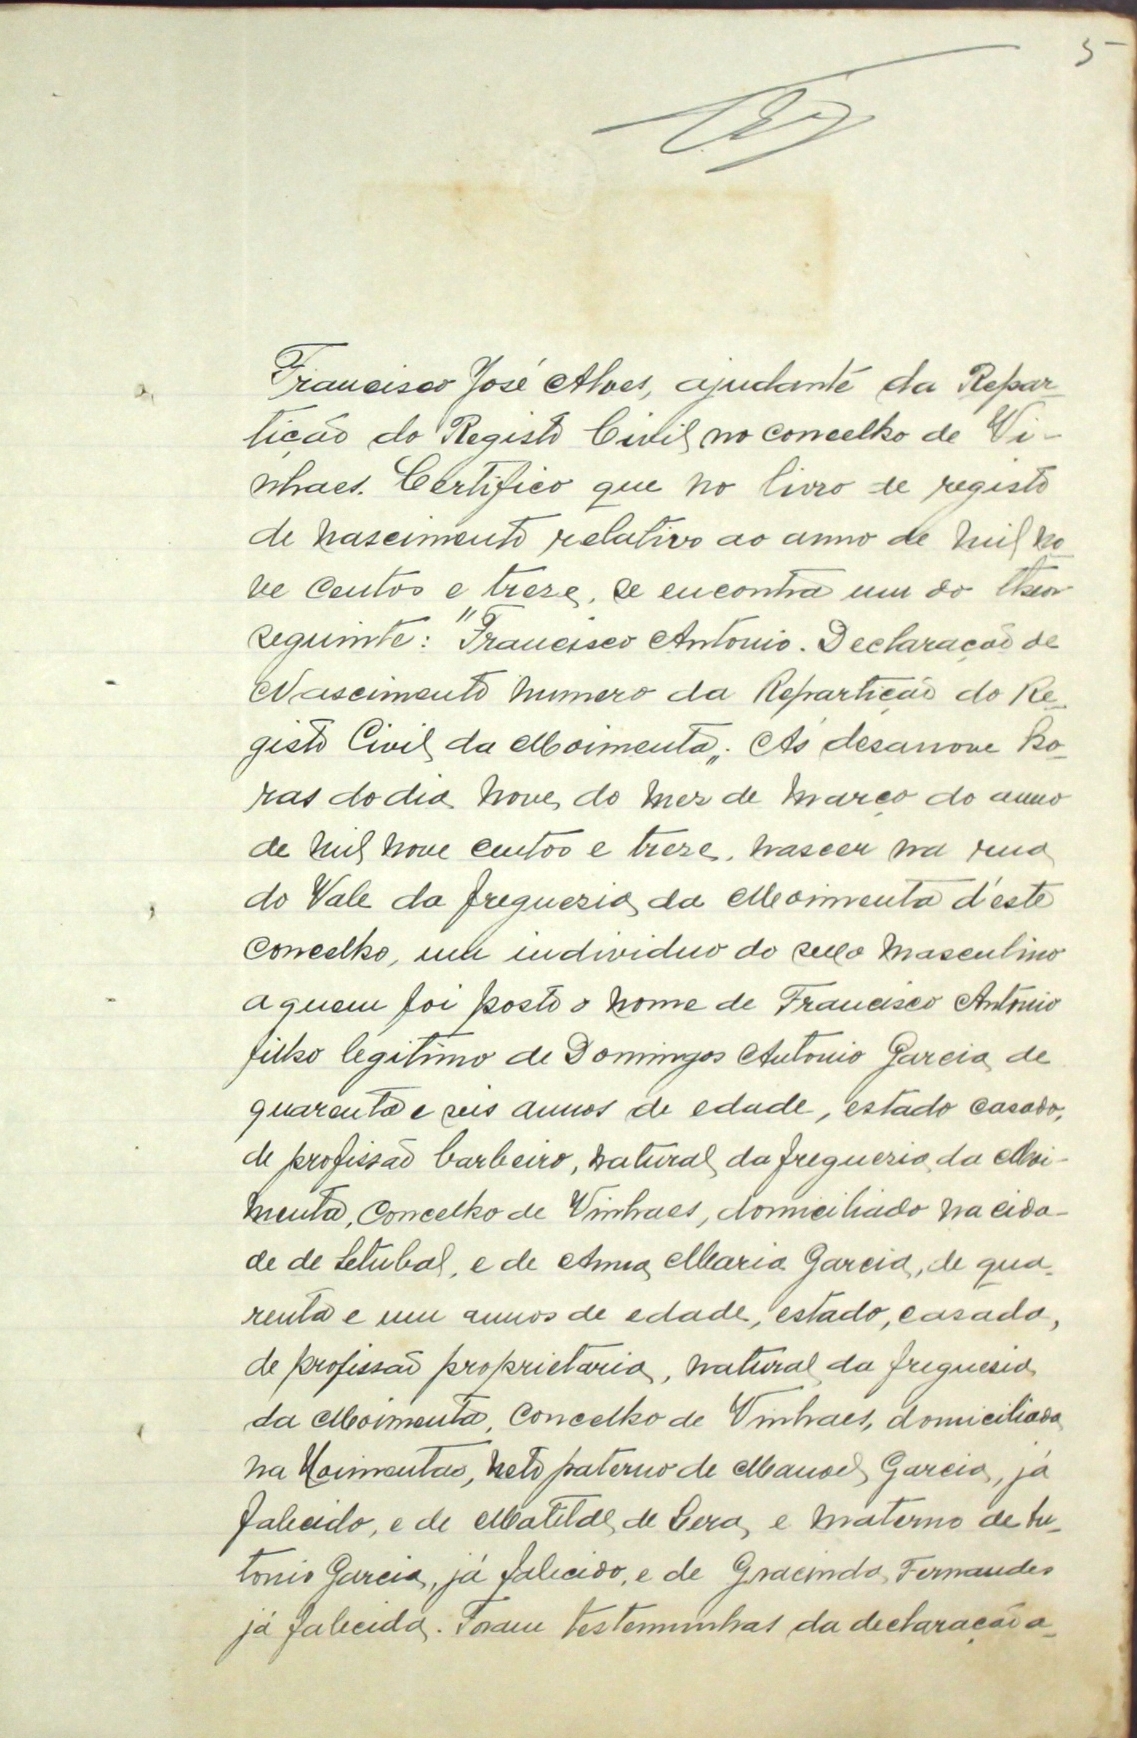 5
Francisco José Alves, ajudante da Repar-
tição do Registo Civil no concelho de Vi-
nhaes. Certifico que no livro de registo
de nascimento relativo ao anno de mil no-
ve centos e treze, se encontra um do theor
seguinte: "Francisco Antonio. Declaração de
Nascimento numero da Repartição do Re-
gisto Civil da Moimenta„. Ás desanove ho-
ras do dia nove do mez de março do anno
de mil nove centos e treze, nasceu na rua
do Vale da freguezia da Moimenta d'este
concelho, um individuo do sexo masculino
a quem foi posto o nome de Francisco Antonio
filho legitimo de Domingos Antonio Garcia, de
quarenta e seis annos de edade, estado casado,
de profissão barbeiro, natural da freguezia da Moi-
menta, concelho de Vinhaes, domiciliado na cida-
de de Setubal, e de Anna Maria Garcia, de qua-
renta e um annos de edade, estado, casada,
de profissão proprietaria, natural da freguesia
da Moimenta, concelho de Vinhaes, domiciliada
na Moimenta, neto paterno de Manoel Garcia, já
falecido, e de Matilde de and e materno de An-
tonio Garcia, já falecido, e de Gracinda Fernandes
já falecida. Foram testemunhas da declaração a-